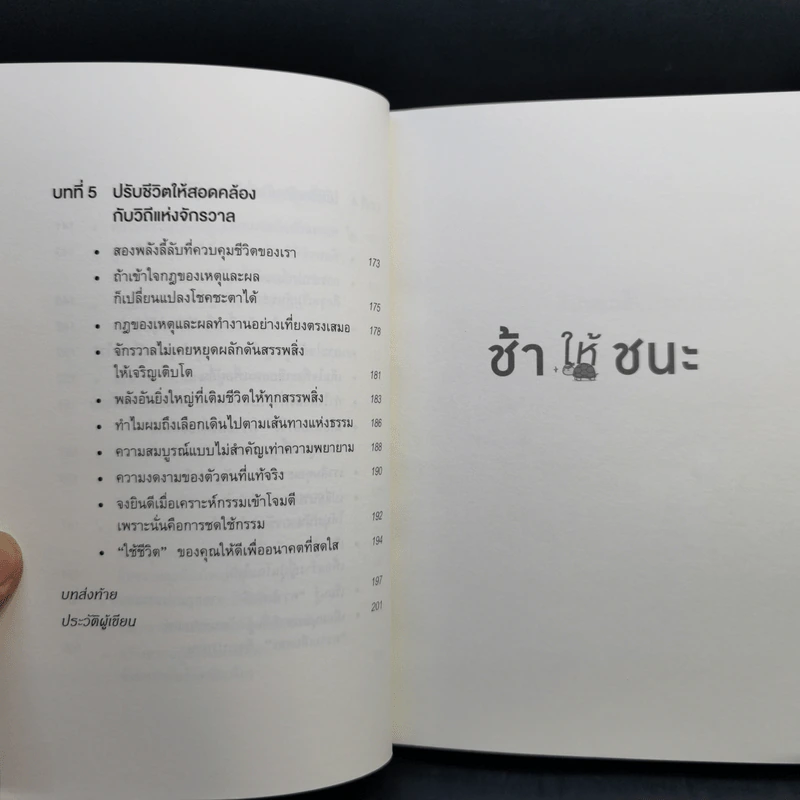 บทที่ 5 ปรับชีวิตให้สอดคล้อง
กับวิถีแห่งจักรวาล
• สองพลังลี้ลับที่ควบคุมชีวิตของเรา 173
• ถ้าเข้าใจกฎของเหตุและผล
ก็เปลี่ยนแปลงโชคชะตาได้ 175
• กฎของเหตุและผลทำงานอย่างเที่ยงตรงเสมอ 178
• จักรวาลไม่เคยหยุดผลักดันสรรพสิ่ง
ให้เจริญเติบโต 181
• พลังอันยิ่งใหญ่ที่เติมชีวิตให้ทุกสรรพสิ่ง 183
• ทำไมผมถึงเลือกเดินไปตามเส้นทางแห่งธรรม 186
• ความสมบูรณ์แบบไม่สำคัญเท่าความพยายาม 188
• ความงดงามของตัวตนที่แท้จริง 190
• จงยินดีเมื่อเคราะห์กรรมเข้าโจมตี
เพราะนั่นคือการชดใช้กรรม 192
• "ใช้ชีวิต" ของคุณให้ดีเพื่ออนาคตที่สดใส 194
บทส่งท้าย 197
ประวัติผู้เขียน 201
ช้า ให้ ชนะ